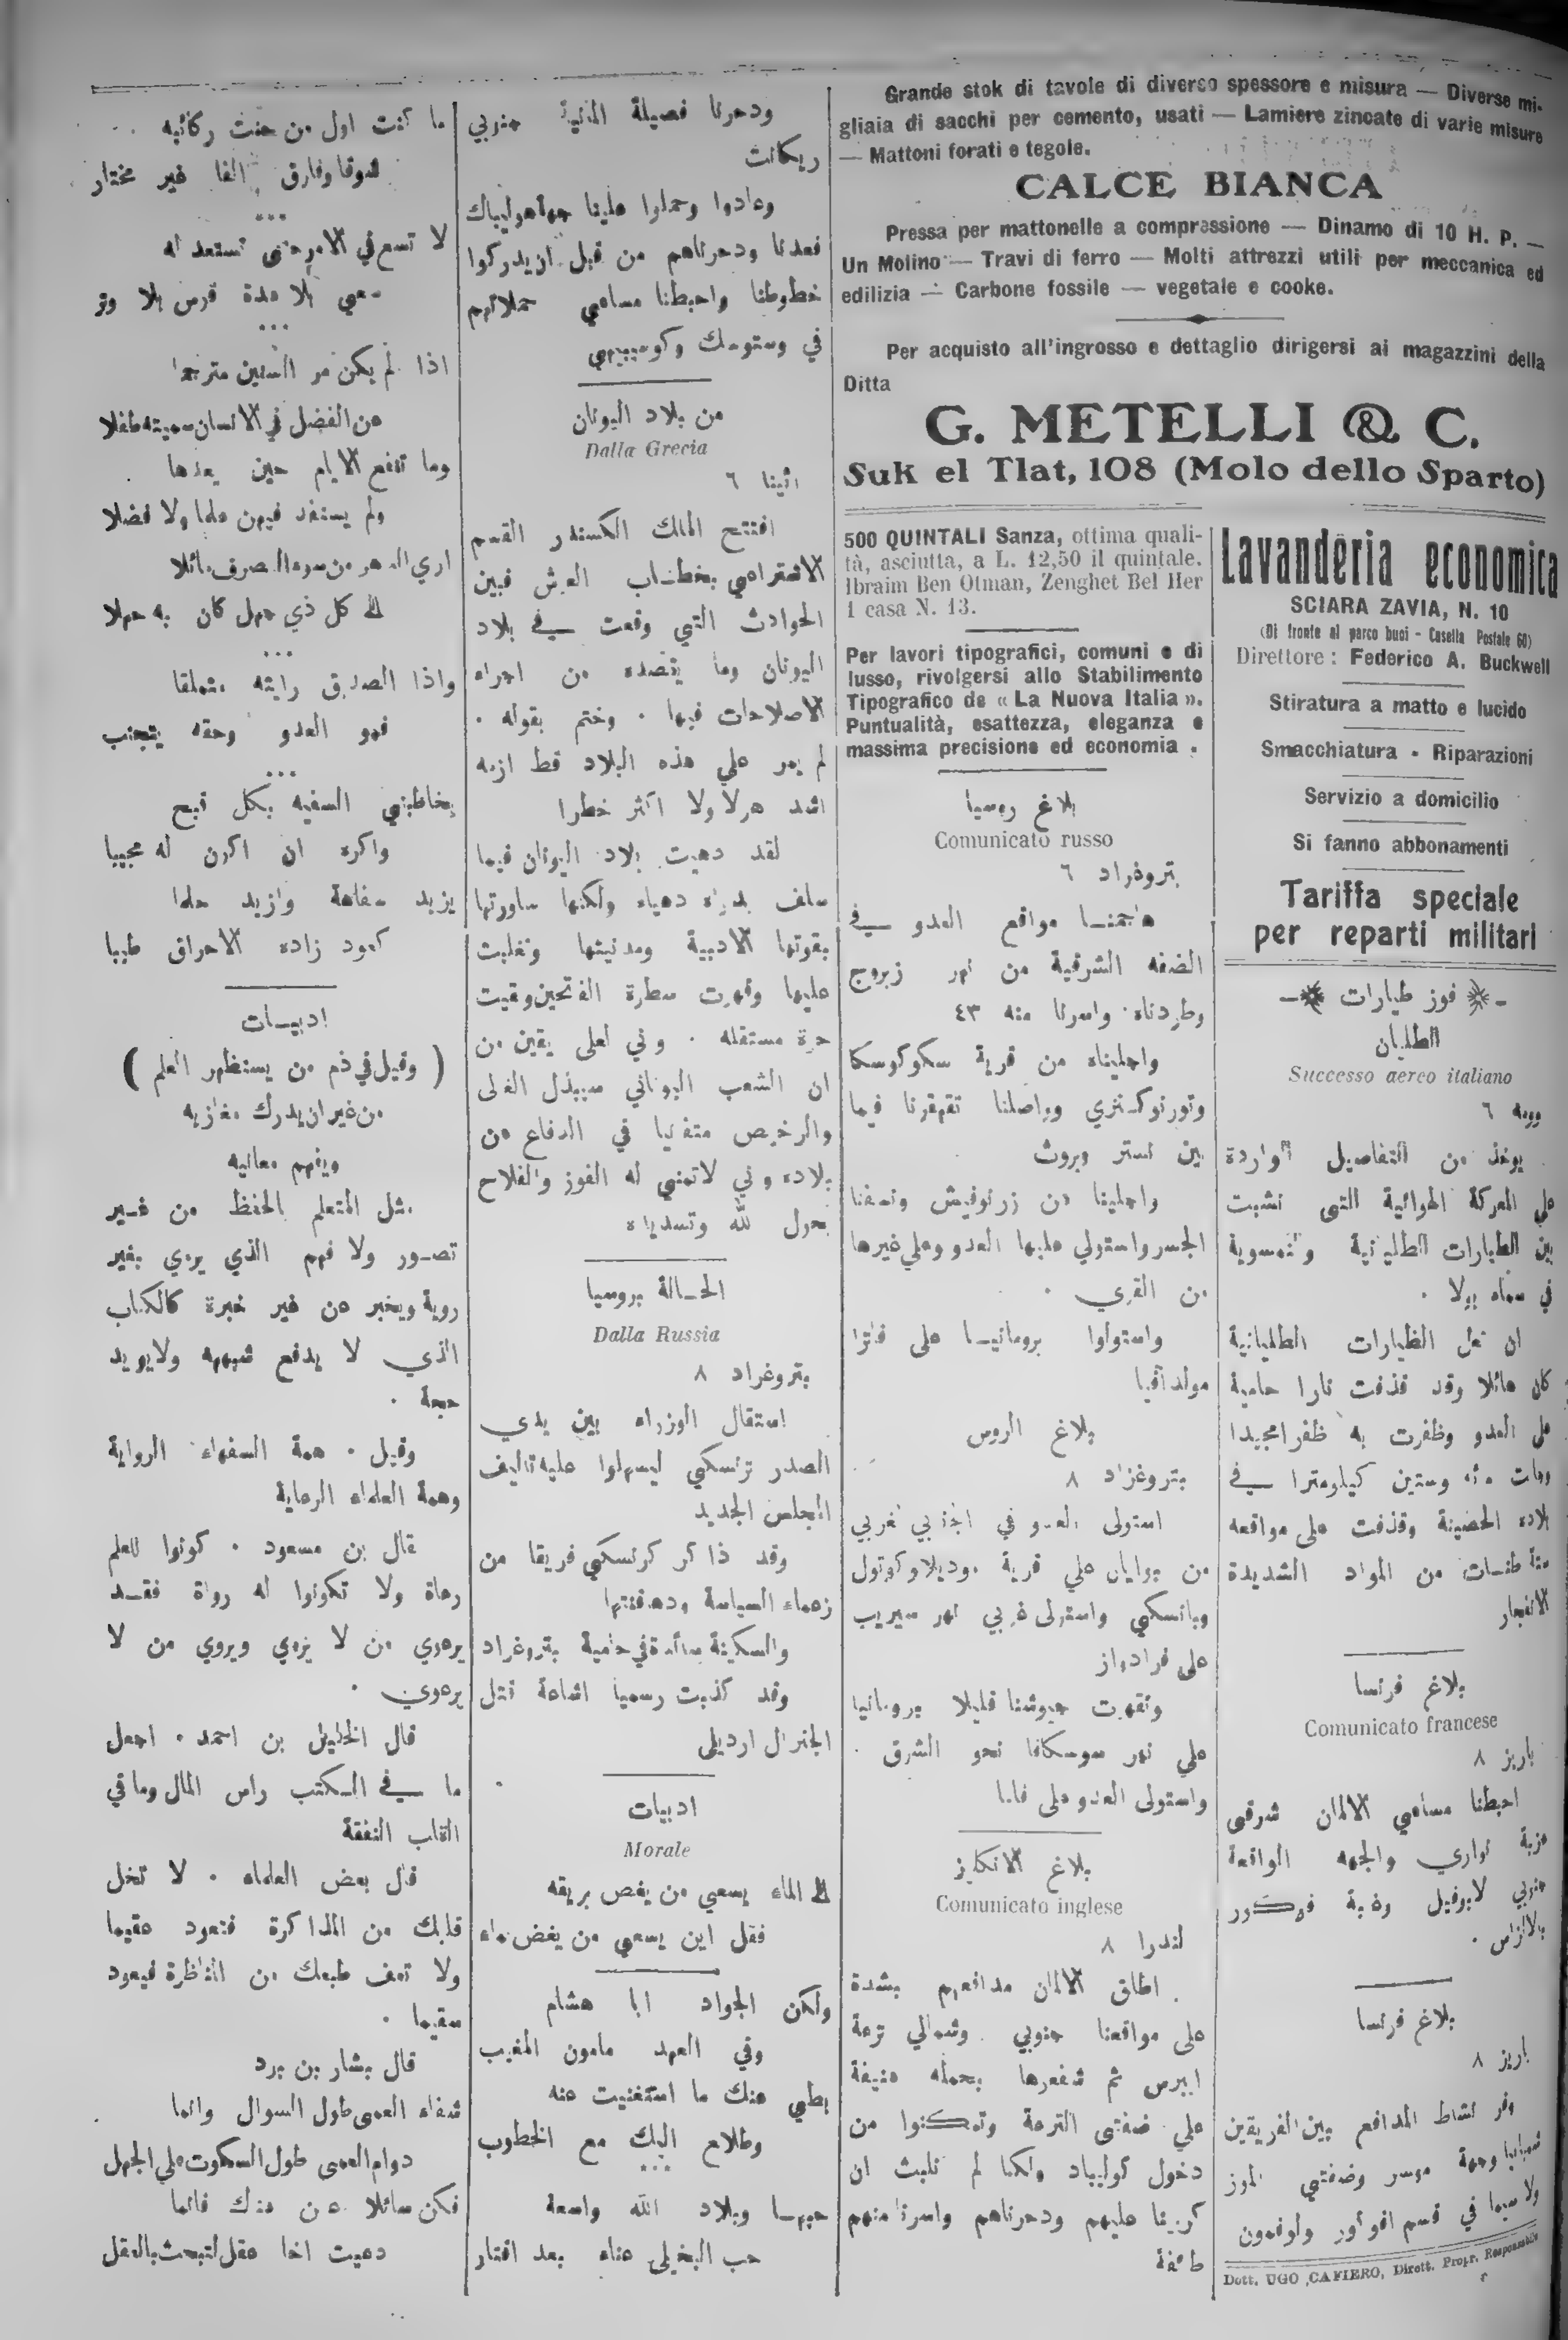 Grande stok di tavole di diverso spessore e misura — Diverse mi-
gliaia di sacchi per cemento, usati — Lamiere zincate di varie misure
— Mattoni forati e tegole.
CALCE BIANCA
Pressa per mattonelle a compressione — Dinamo di 10 H. P. —
Un Molino — Travi di ferro — Molti attrezzi utili per meccanica ed
edilizia — Carbone fossile — vegetale e cooke.
Per acquisto all'ingrosso e dettaglio dirigersi ai magazzini della
Ditta
G. METELLI & C.
Suk el Tlat, 108 (Molo dello Sparto)
Lavanderia economica
SCIARA ZAVIA, N. 10
(Di fronte al parco buoi - Casella Postale 60)
Direttore: Federico A. Buckwell
Stiratura a matto e lucido
Smacchiatura - Riparazioni
Servizio a domicilio
Si fanno abbonamenti
Tariffa speciale
per reparti militari
فوز طيارات
الطليان
Successo aereo italiano
رومه ٦
يوخذ من التفاصيل الواردة
علي المعركة الهوائية التى نشبت
بين الطيارات الطليانية والنمسوية
في سماء بولا .
ان فعل الطيارات الطليانية
كان هائلا وقد قذفت نارا حامية
على العدو وظفرت به ظفرا مجيدا
وستين كيلومترا في
بلاده الحصينة وقذفت على مواقعه
من المواد الشديدة
الانفجار
بلاغ فرنسا
Comunicato francese
باريز ٨
احبطنا مساعي الالمان شرقى
والجهه الواقعة
جنوبي
بالالزاس .
بلاغ فرنسا
باريز ٨
وفر نشاط المدافع بين الفريقين
وضفتي الموز
ولا سيما في قسم
Dott. UGO CAFIERO, Dirett. Propr. Responsabile
500 QUINTALI Sanza, ottima quali-
tà, asciutta, a L. 12,50 il quintale.
Ibraim Ben Otman, Zenghet Bel Her
1 casa N. 13.
Per lavori tipografici, comuni e di
lusso, rivolgersi allo Stabilimento
Tipografico de « La Nuova Italia ».
Puntualità, esattezza, eleganza e
massima precisione ed economia .
بلاغ روسيا
Comunicato russo
بتروغراد ٦
هاجمنا مواقع العدو في
الضفه الشرقية من نهر زبروج
وطردناه واسرنا منه ٤٣
واجليناه من قرية سكوكوسكا
وواصلنا تقهقرنا فيما
بين نستر وبروث
واجلينا من زرنوفيش ونسفنا
الجسر واستولي عليها العدو وعلي غيرها
من القري .
واستولوا برومانيا على فاترا
مولدافيا
بلاغ الروس
بتروغراد ٨
استولى العدو في الجنوبي الغربي
من علي قرية
واستولى غربي نهر سيريب
على
وتقهرت جيوشنا قليلا برومانيا
علي نهر سوسكافا نحو الشرق .
واستولى العدو على
بلاغ الانكليز
Comunicato inglese
لندرا ٨
اطلق الالمان مدافعهم بشدة
على مواقعنا جنوبي وشمالي ترعة
ايبرس ثم شفعوها بحمله عنيفة
علي ضفتى الترعة وتمكنوا من
دخول ولكنا لم نلبث ان
كررنا عليهم ودحرناهم واسرنا منهم
طائفة
ودحرنا فصيلة المانية جنوبي
وعادوا وحملوا علينا
فعدنا ودحرناهم من قبل ان يدركوا
خطوطنا واحبطنا مساعي حملاتهم
في
من بلاد اليونان
Dalla Grecia
اثينا ٦
افتتح الملك الكسندر القسم
الاشتراعي بخطاب العرش فبين
الحوادث التي وقعت في بلاد
اليونان وما يقصده من اجراء
الاصلاحات فيها . وختم بقوله .
لم يمر علي هذه البلاد قط ازمه
اشد هولا ولا اكثر خطرا
لقد دهيت بلاد اليونان فيما
سلف دهياء ولكنها ساورتها
بقوتها الادبية ومدنيتها وتغلبت
عليها وقهرت سطوة الفاتحين وبقيت
حرة مستقله . وني لعلى يقين من
ان الشعب اليوناني سيبذل الغالى
والرخيص متفانيا في الدفاع عن
بلاده وني لاتمنى له الفوز والفلاح
بحول الله
الحالة بروسيا
Dalla Russia
بتروغراد ٨
استقال الوزراء بين يدي
الصدر ليسهلوا عليه تاليف
المجلس الجديد
وقد ذاكر كرنسكي فريقا من
زعماء السياسة
والسكينة سائدة في حامية بتروغراد
وقد كذبت رسميا اشاعة قتل
الجنرال
ادبيات
Morale
الى الماء يسعي من يغص بريقه
فقل اين يسعي من يغص بماء
ولكن الجواد ابا هشام
وفي العهد مامون المغيب
بطي عنك ما استغنيت عنه
وطلاع اليك مع الخطوب
وبلاد الله واسعة
حب البخيلى غناء بعد اقتار
ما كنت اول من حنت ركائبه
شوقا وفارق الفا غير مختار
لا تسع في الامر حتى تستعد له
سعي بلا عدة قوس بلا وتر
اذا لم يكن مر السنين مترجما
عن الفضل في الانسان سميته طفلا
وما تنفع الايام حين يعدها
ولم يستفد فيهن علما ولا فضلا
اري الدهر من سوء التصرف مائلا
الى كل ذي جهل كان به جهلا
واذا الصديق رايته متملقا
فهو العدو وحقه يتجنب
يخاطبني السفيه بكل قبح
واكره ان اكون له مجيبا
يزيد سفاهة وازيد حلما
كعود زاده الاحراق طيبا
ادبيات
( وقيل في ذم من يستظهر العلم )
من غير ان يدرك مغازيه
ويفهم معانيه
مثل المتعلم بالحفظ من غير
تصور ولا فهم الذي يروي بغير
روية ويخبر عن غير خبرة كالكتاب
الذي لا يدفع شبهه ولا يويد
حجة .
وقيل . همة السفهاء الرواية
وهمة العلماء الرعاية
قال بن مسعود . كونوا للعلم
رعاة ولا تكونوا له رواة فقد
يرعوي من لا يروي ويروي من لا
يرعوي .
قال الخليل بن احمد . اجعل
ما في الكتب راس المال وما في
القلب النفقة
قال بعض العلماء . لا تخل
قلبك من المذاكرة فتعود عقيما
ولا تعف طبعك من المناظرة فيعود
سقيما .
قال بشار بن برد
شفاء العمى طول السوال وانما
دوام العمى طول السكوت علي الجهل
فكن سائلا عن
دعيت اخا عقل لتبحث بالعقل